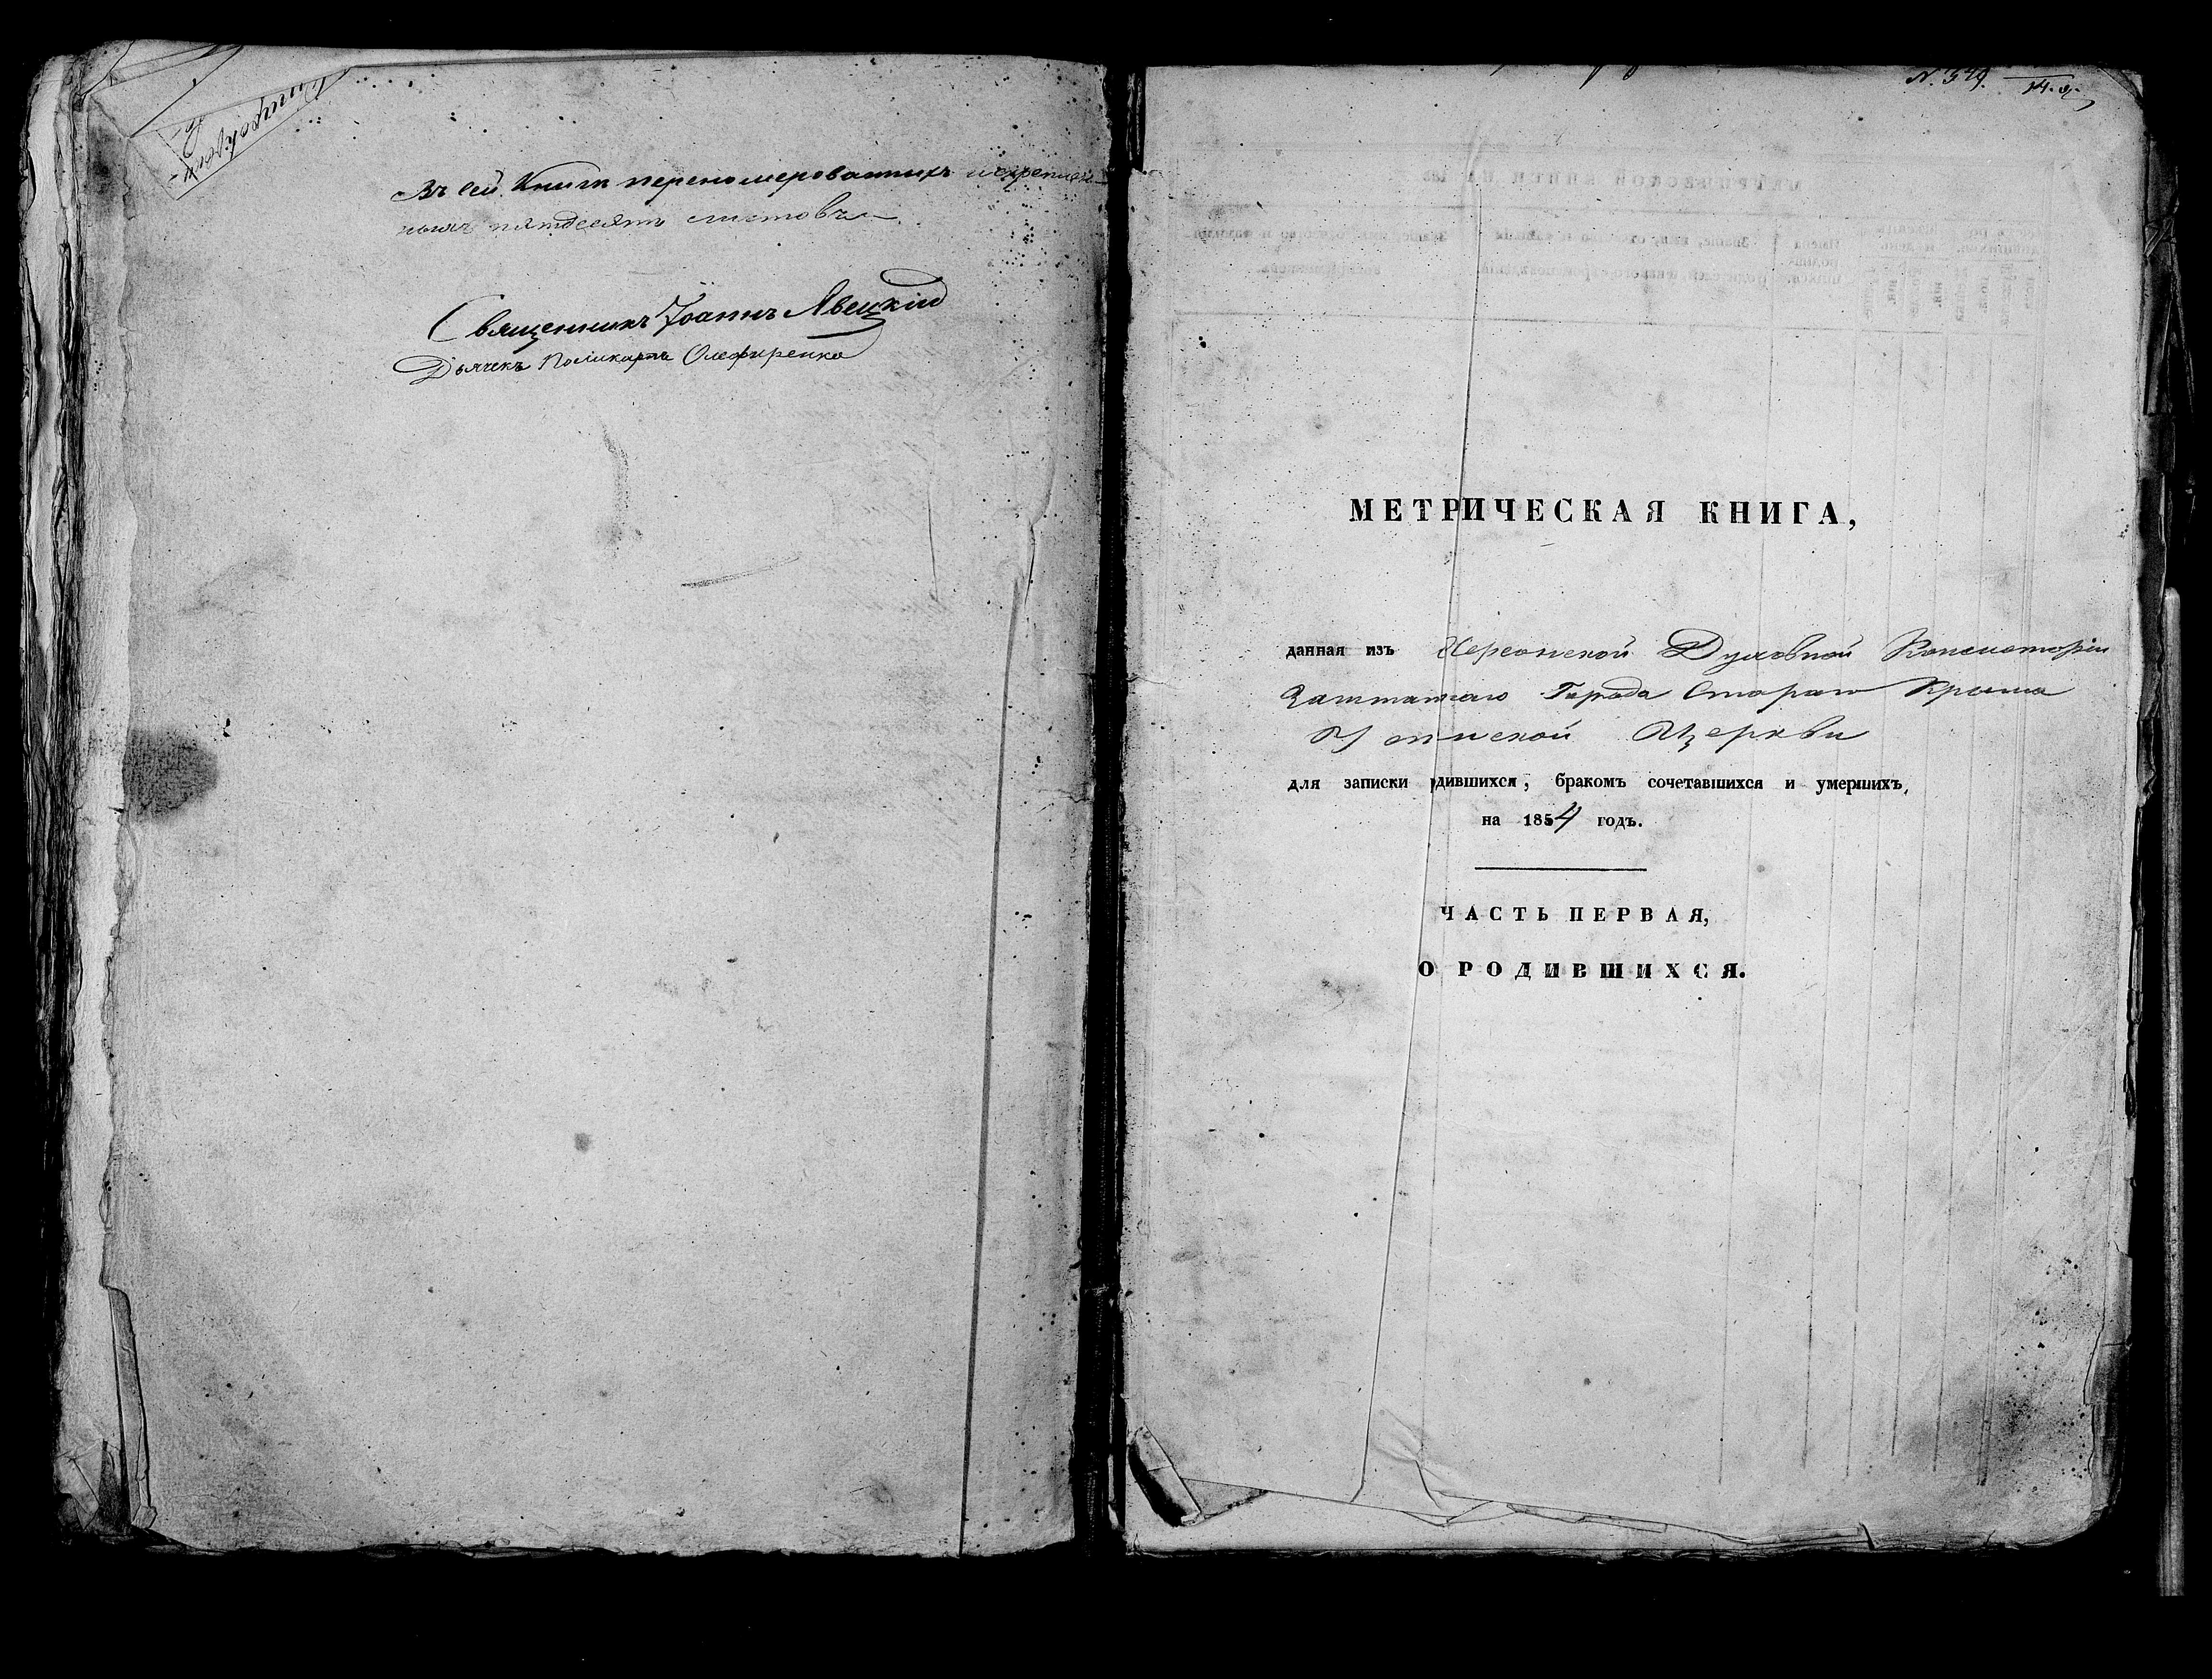 Въ сей Книги переномерованныхъ и скреплен-
ныхъ пятдесятъ листовъ.
Священникъ Іоаннъ Явецкій
Дьячекъ Поликарпъ Олефиренко
N. 379.
МЕТРИЧЕСКАЯ КНИГА,
данная изъ Херсонской Духовной Консисторіи
Заштатнаго Города Стараго Крыма
Успенской Церкви
для записки рдившихся, бракомъ сочетавшихся и умершихъ,
на 1854 годъ.
ЧАСТЬ ПЕРВАЯ,
О РОДИВШИХСЯ.